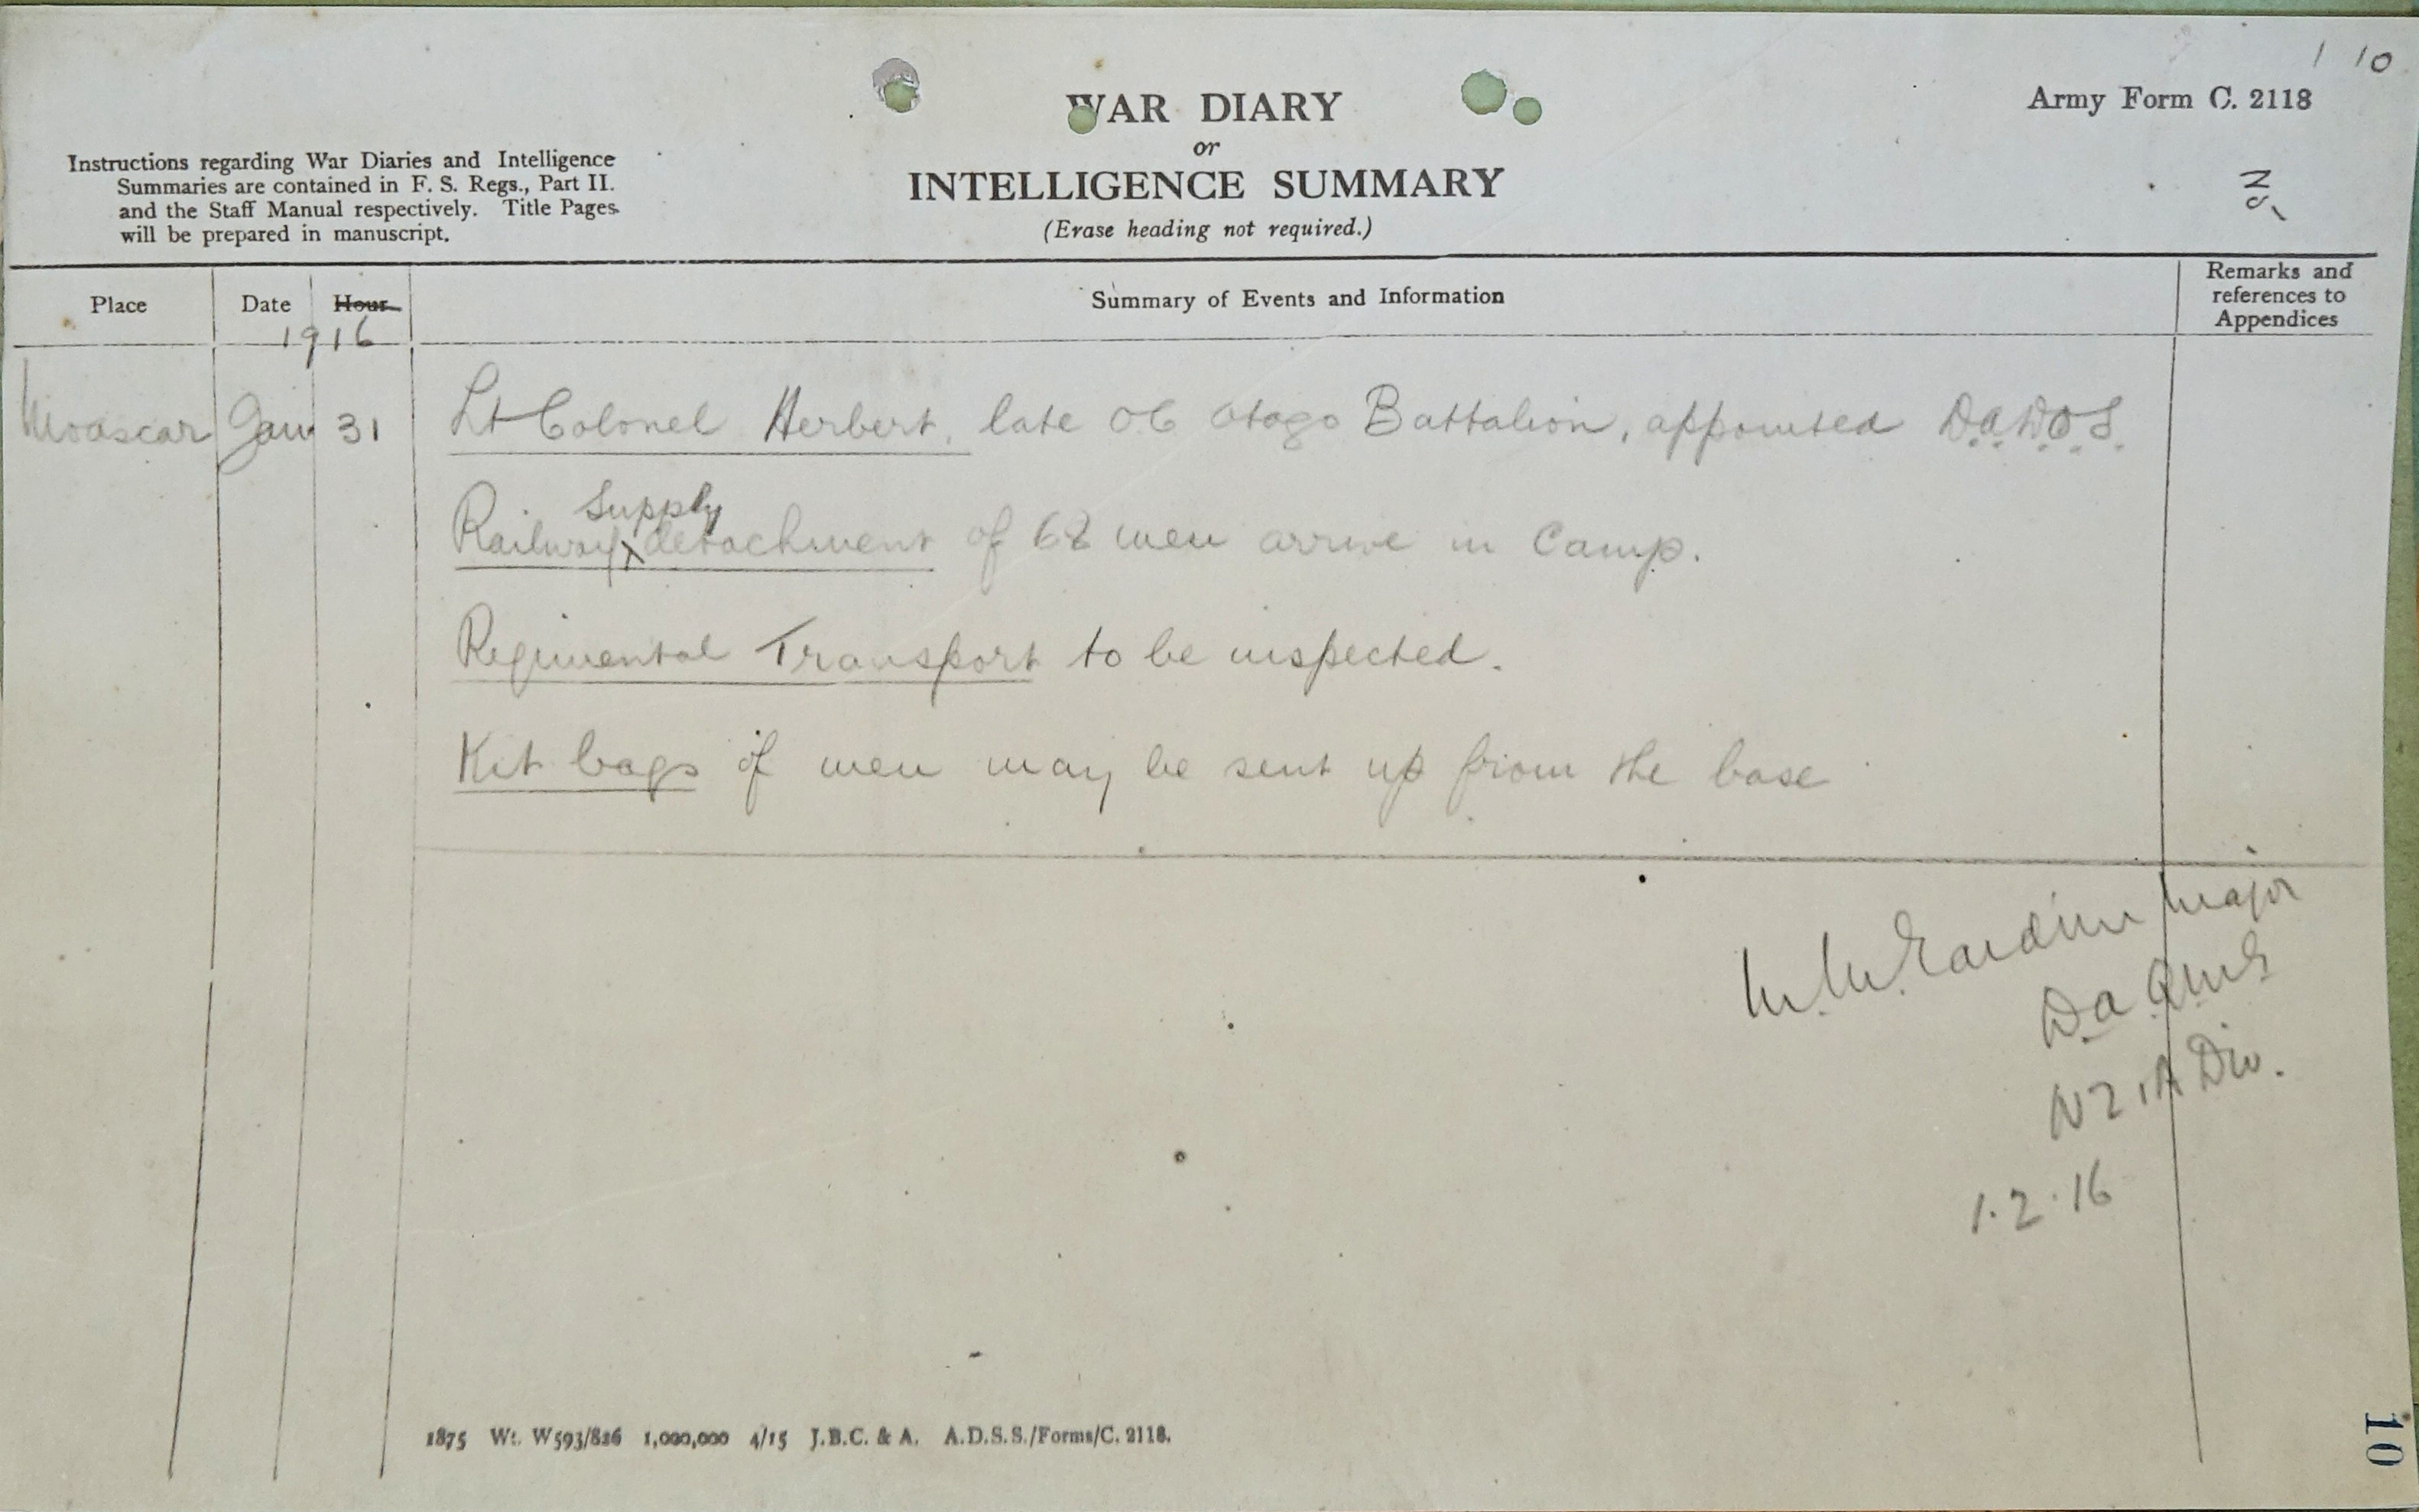 1 10
WAR DIARY
or
INTELLIGENCE SUMMARY
(Erase heading not required.)
Army Form C. 2118
Instructions regarding War Diaries and Intelligence
Summaries are contained in F. S. Regs., Part II.
and the Staff Manual respectively. Title Pages
will be prepared in manuscript.
Place
Date
Hour
1916
Summary of Events and Information
Remarks and
references to
Appendices
Moascar Jan 31 Lt Colonel Herbert, late OC Otago Battalion, appointed D.A.D.O.S.
Supply
Railway detachment of 68 men arrive in Camp.
Regimental Transport to be inspected.
Kit bags of men may be sent up from the base
Major
D.A.Q.M.G
NZ & A Div.
1.2.16
1875 Wt. W593/826 1,000,000 4/15 J.B.C. & A. A.D.S.S./Forms/C. 2118.
10